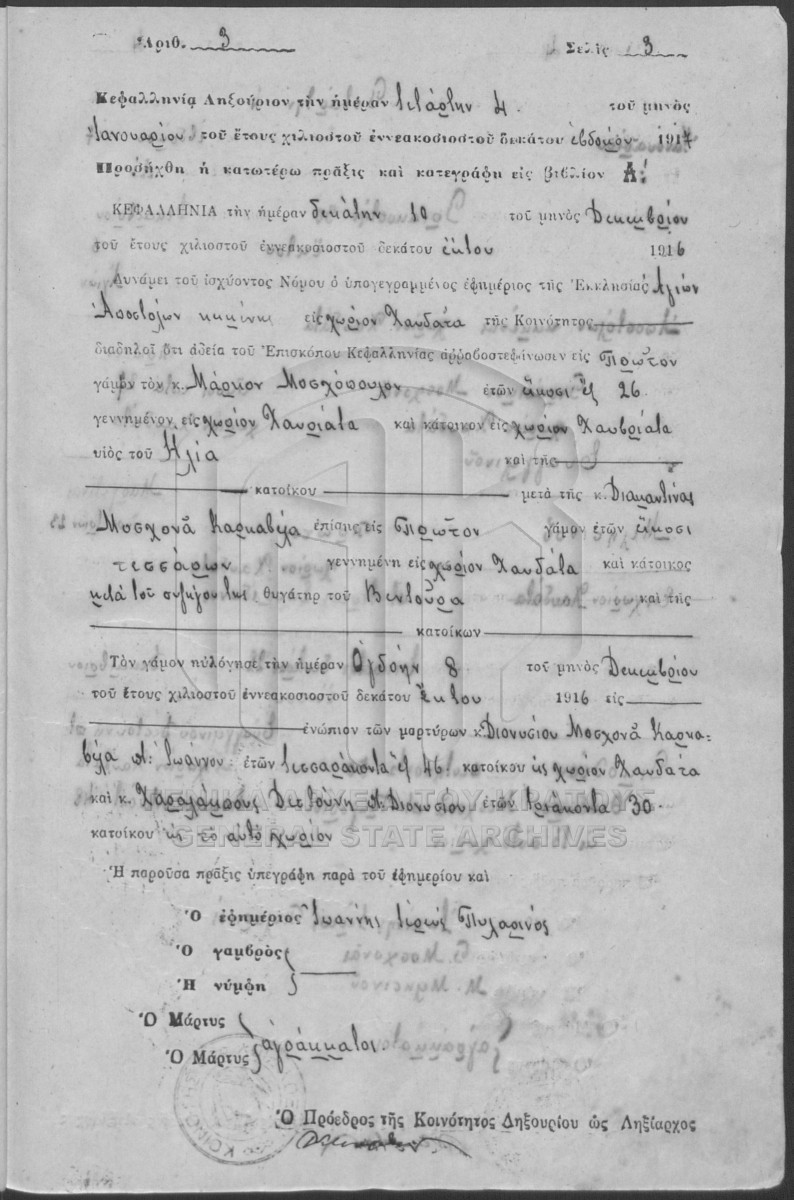 Ἀριθ. 3 Σελὶς 3
Κεφαλληνία Ληξούριον τὴν ἡμέραν τετάρτην 4 τοῦ μηνὸς
Ἰανουαρίου τοῦ ἔτους χιλιοστοῦ ἐννεακοσιοστοῦ δεκάτου ἑβδόμου 1917
Προσήχθη ἡ κατωτέρω πρᾶξις καὶ κατεγράφη εἰς βιβλίον Α!
ΚΕΦΑΛΛΗΝΙΑ τὴν ἡμέραν δεκάτην 10 τοῦ μηνὸς Δεκεμβρίου
τοῦ ἔτους χιλιοστοῦ ἐννεακοσιοστοῦ δεκάτου ἕκτου 1916
Δυνάμει τοῦ ἰσχύοντος Νόμου ὁ ὑπογεγραμμένος ἐφημέριος τῆς Ἐκκλησίας Ἁγίων
Ἀποστόλων εἰς χωρίον Χαυδάτα τῆς Κοινότητος
διαδηλοῖ ὅτι ἀδείᾳ τοῦ Ἐπισκόπου Κεφαλληνίας ἀρραβοστεφάνωσεν εἰς πρῶτον
γάμον τὸν κ. Μάρκον Μοσχόπουλον ἐτῶν εἴκοσι ἕξ 26
γεννημένον εἰς χωρίον Χαυριάτα καὶ κάτοικον εἰς χωρίον Χαυβριάτα
υἱὸς τοῦ Ηλία καὶ τῆς
κατοίκου μετὰ τῆς κ. Διαμαντίνας
Μοσχονᾶ Καρκαβίλα ἐπίσης εἰς πρῶτον γάμον ἐτῶν εἴκοσι
τεσσάρων γεννημένη εἰς χωρίον Χαυδάτα καὶ κάτοικος
μετὰ τοῦ συζύγου της θυγάτηρ τοῦ Βεντούρα καὶ τῆς
κατοίκων
Τὸν γάμον ηὐλόγησε τὴν ἡμέραν Ὀγδόην 8 τοῦ μηνὸς Δεκεμβρίου
τοῦ ἔτους χιλιοστοῦ ἐννεακοσιοστοῦ δεκάτου ἕκτου 1916 εἰς
ἐνώπιον τῶν μαρτύρων κ. Διονυσίου Μοσχονᾶ Καρκα-
βίλα π: Ἰωάννου ἐτῶν τεσσαράκοντα ἕξ 46 κατοίκου εἰς χωρίον Χαυδάτα
καὶ κ. Χαραλάμπους π. Διονυσίου ἐτῶν τριάκοντα 30
κατοίκου εἰς τὸ αὐτὸ χωρίον
ΓΕΝΙΚΑ ΑΡΧΕΙΑ ΤΟΥ ΚΡΑΤΟΥΣ
GENERAL STATE ARCHIVES
Ἡ παροῦσα πρᾶξις ὑπεγράφη παρὰ τοῦ ἐφημερίου καὶ
Ὁ ἐφημέριος Ἰωάννης ἱερεὺς Πυλαρινός
Ὁ γαμβρὸς
Ἡ νύμφη
Ὁ Μάρτυς
Ὁ Μάρτυς ἀγράμματοι
Ὁ Πρόεδρος τῆς Κοινότητος Ληξουρίου ὡς Ληξίαρχος